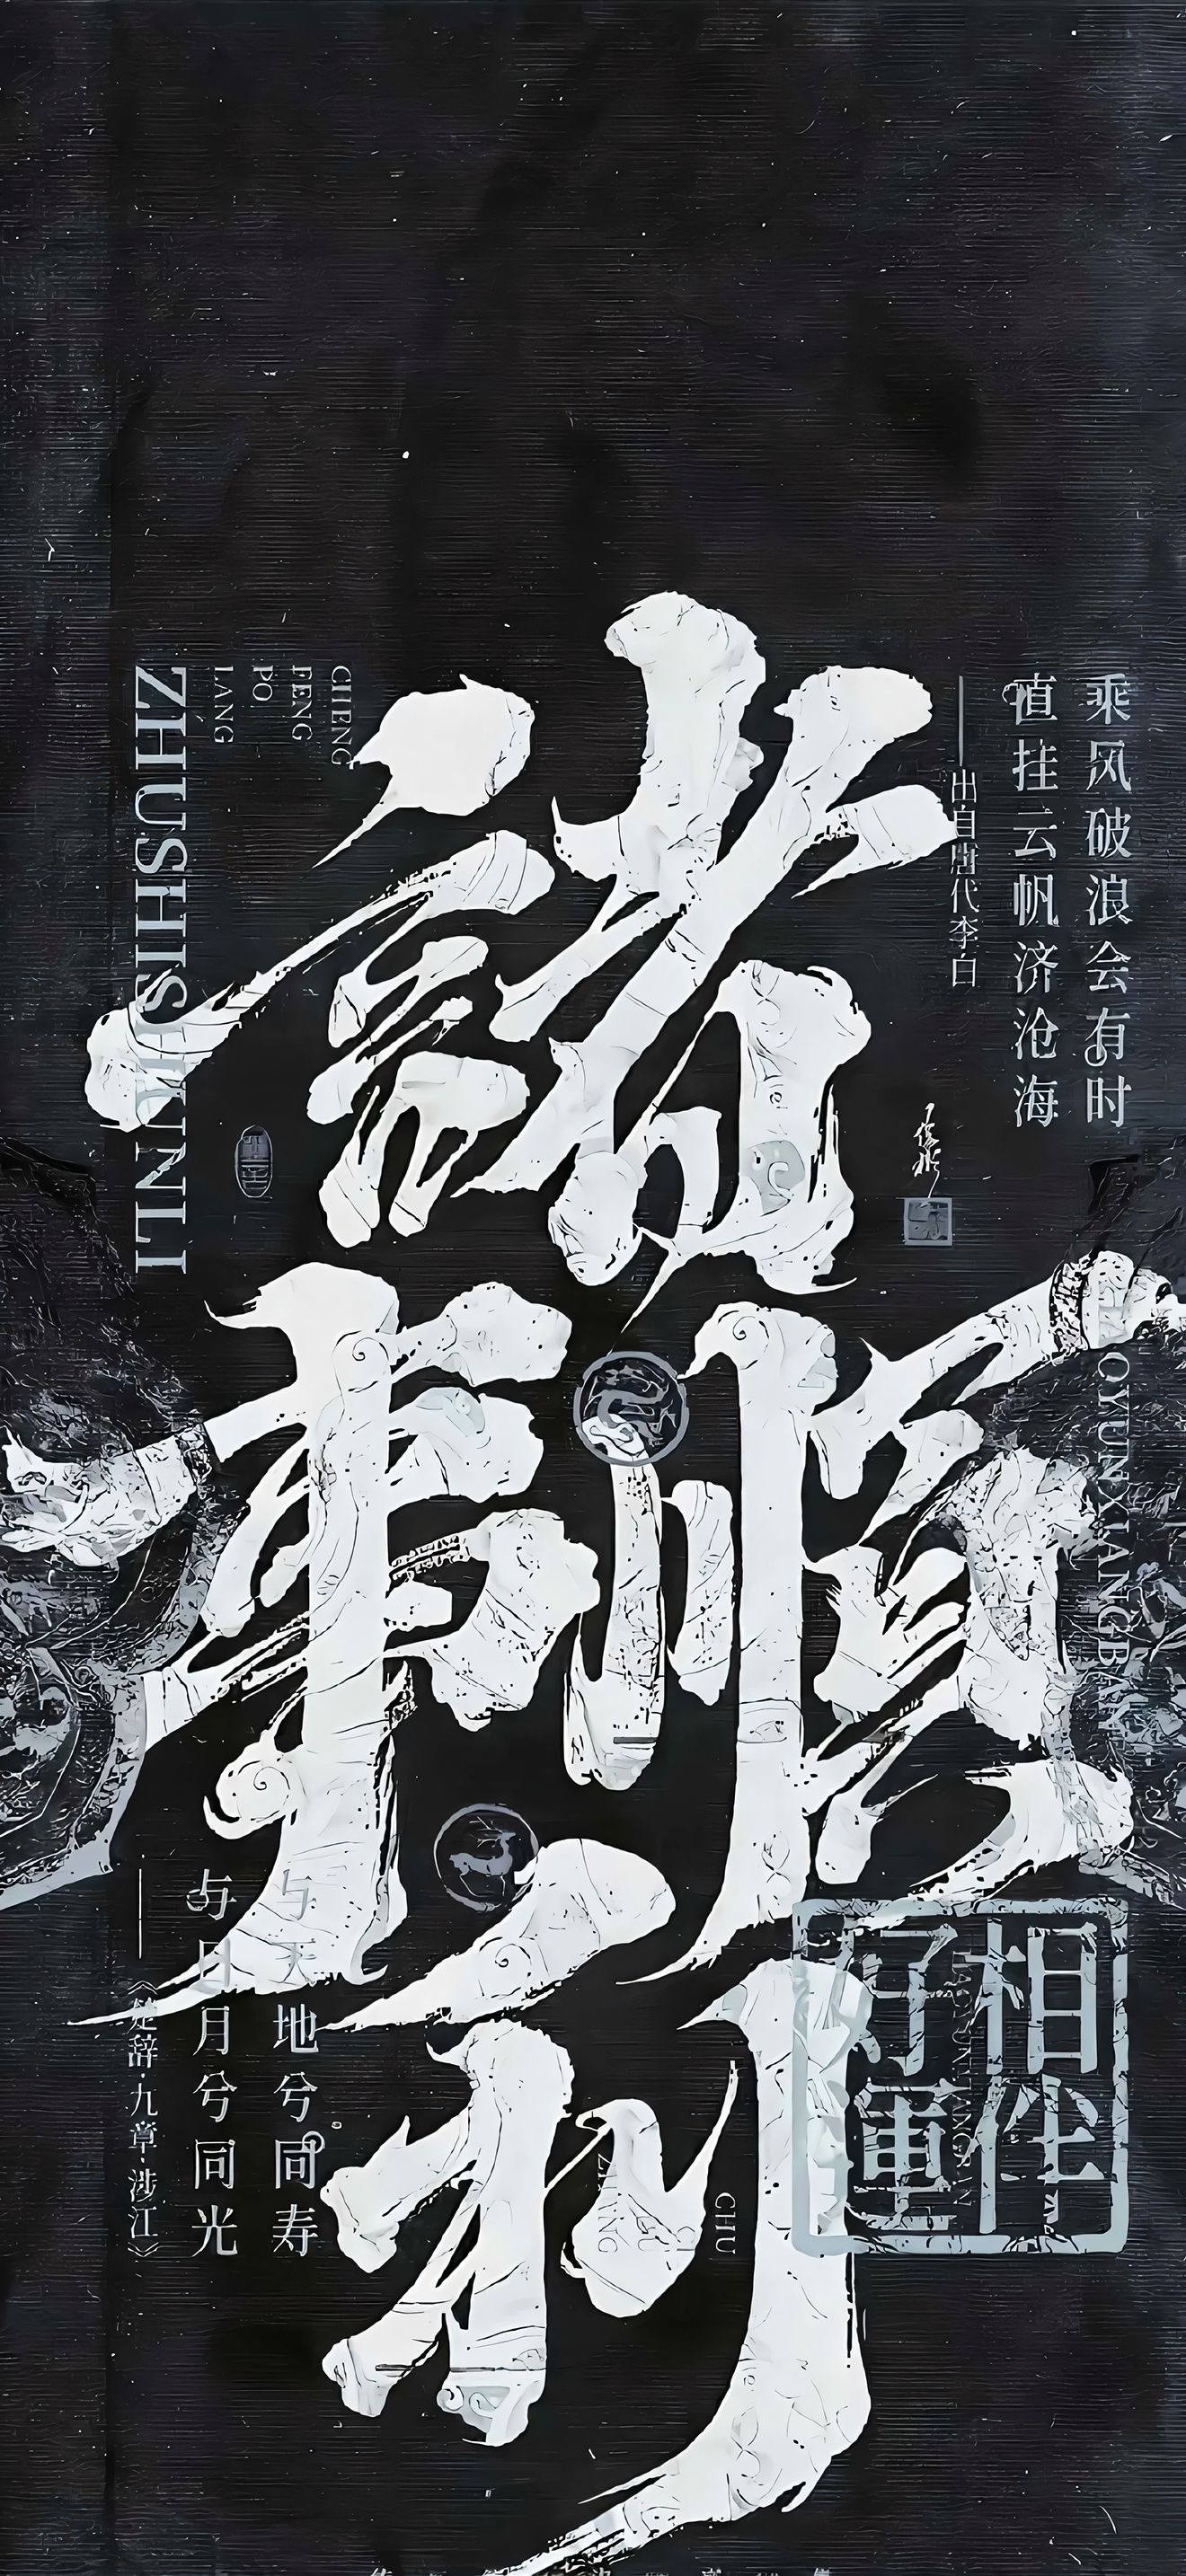 諸事順利
乘风破浪会有时
直挂云帆济沧海
——出自唐代李白
CHENG
FENG
PO
LANG
ZHUSHISHUNLI
好運相伴
与天地兮同寿
与日月兮同光
——《楚辞·九章·涉江》
CHU